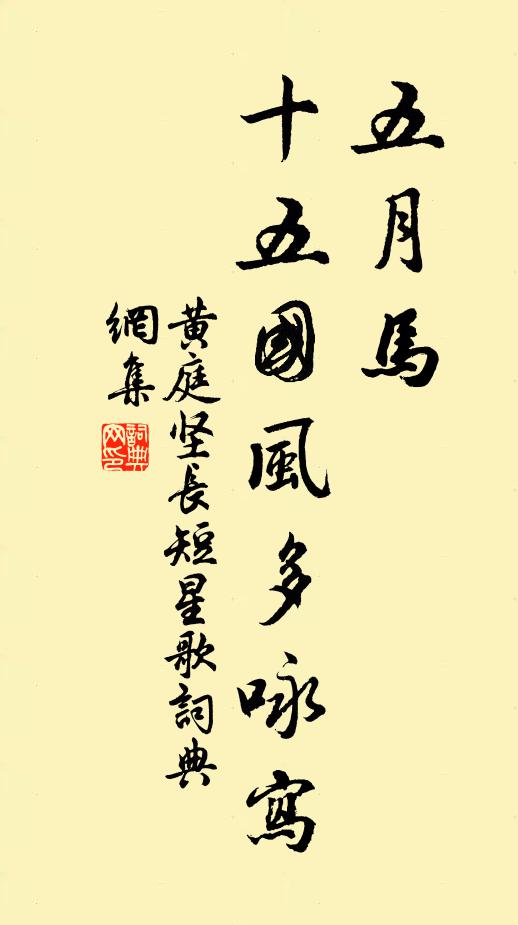 五月馬
十五國風多咏寫
黄庭坚長短星歌詞典
網集
詞典
网印